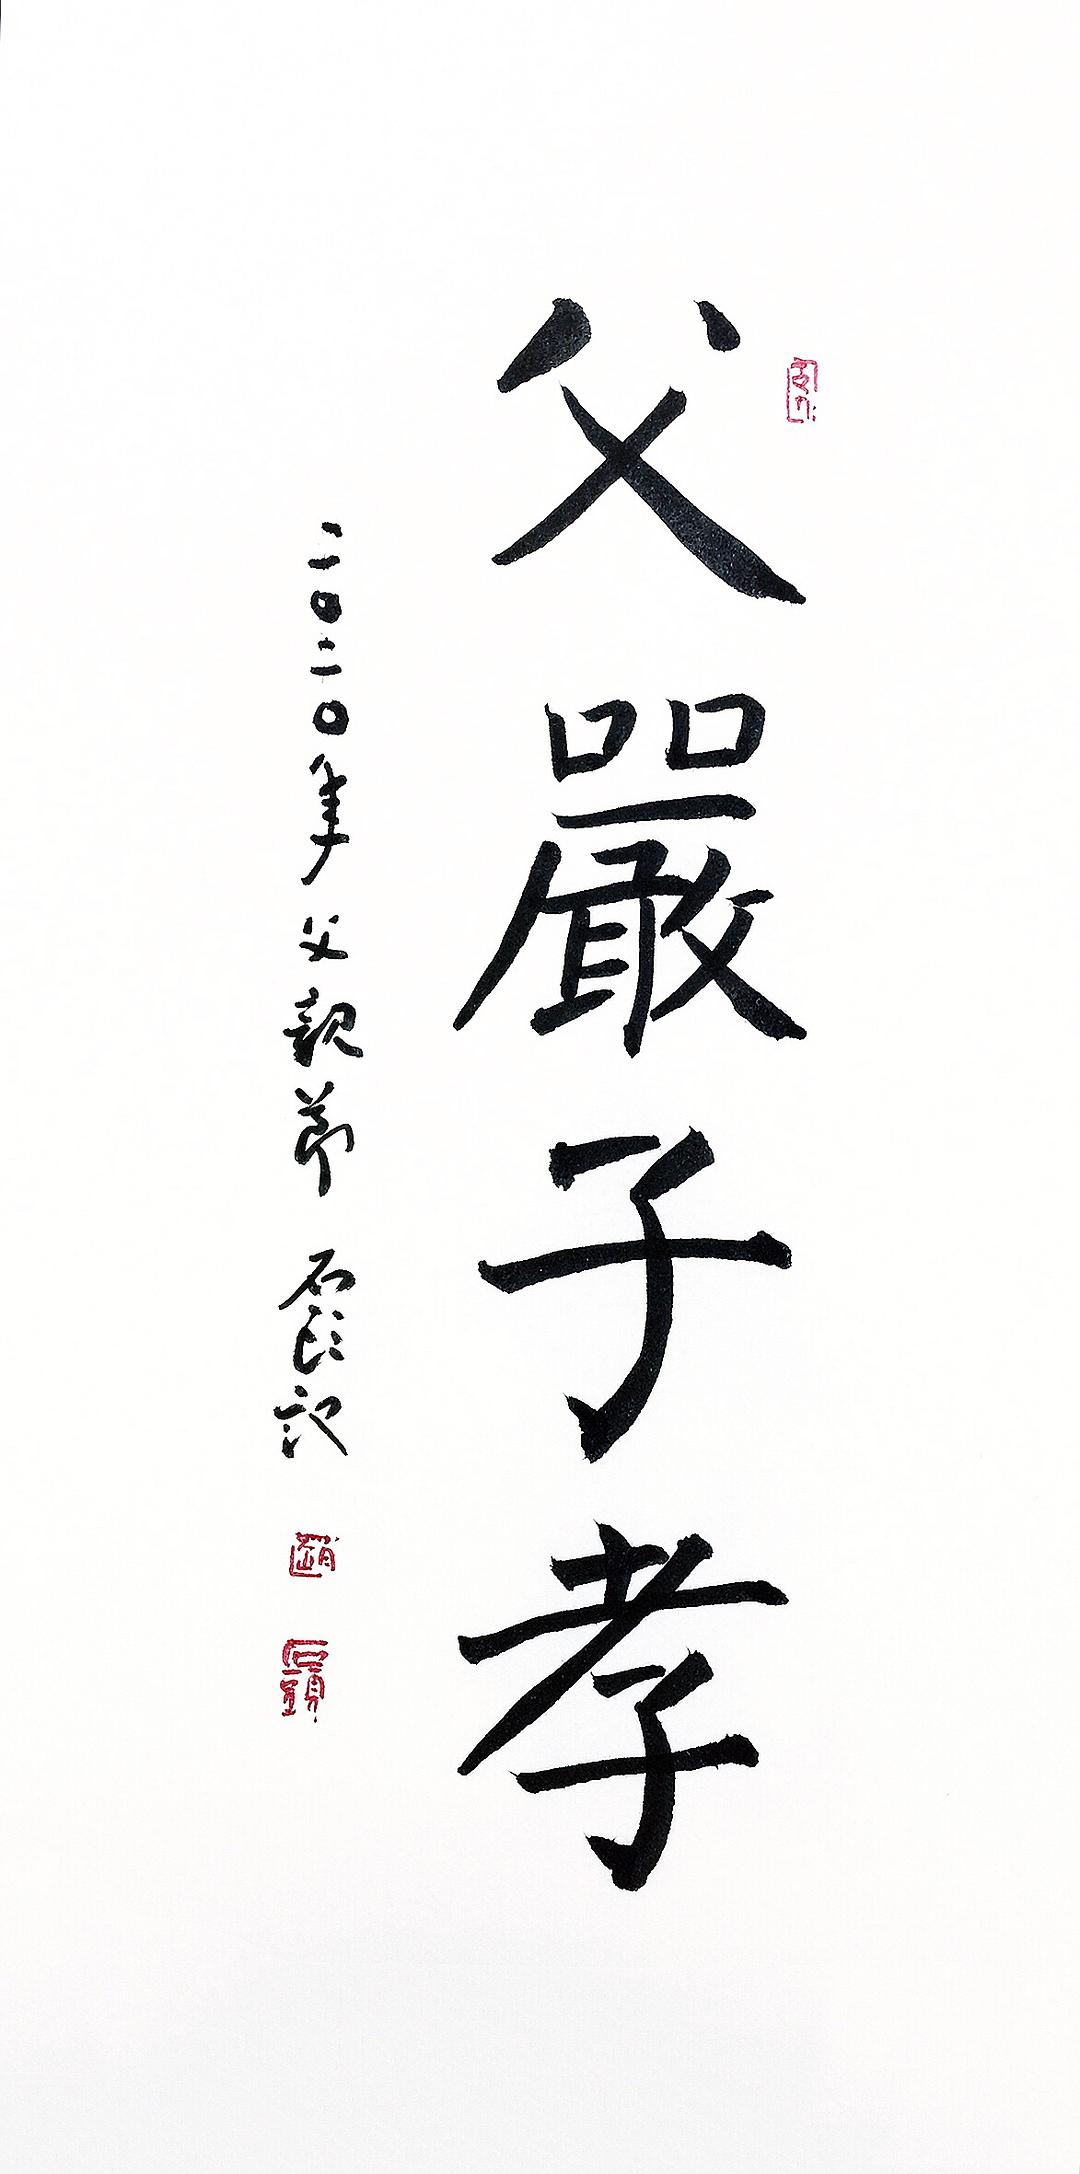 父嚴子孝
二〇二〇年父親節 石頭記
趙